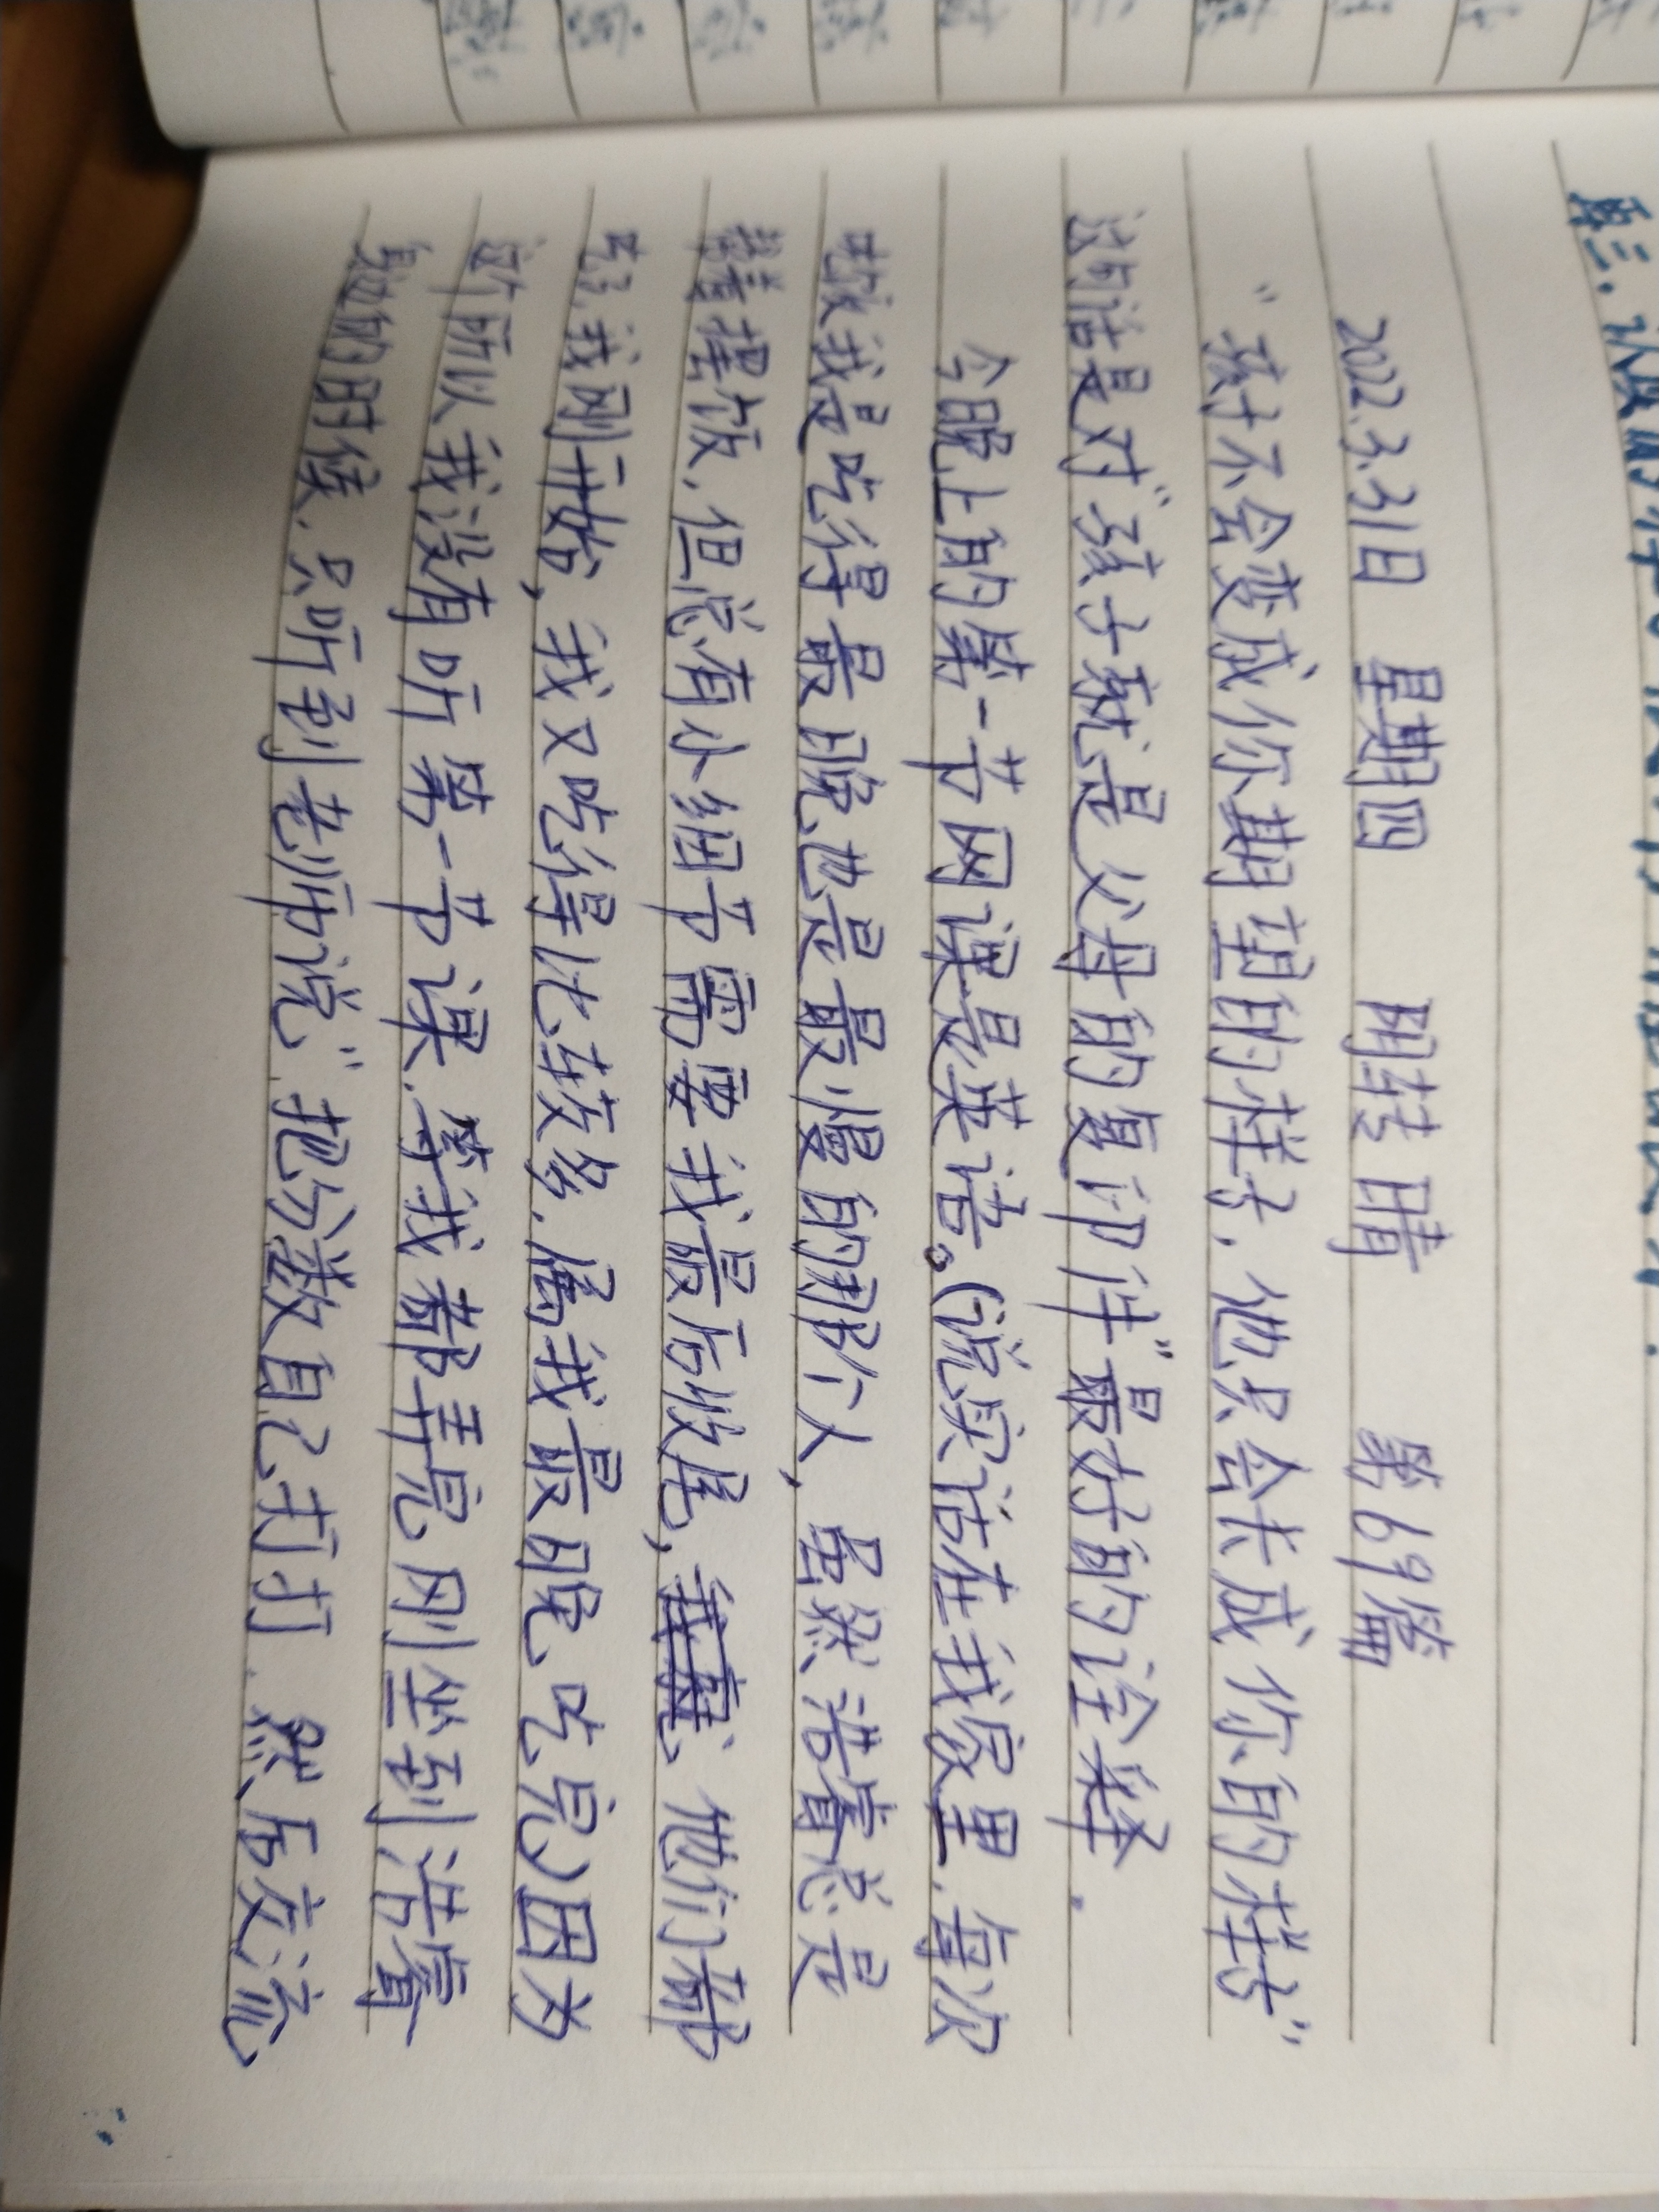 2022.3.31日 星期四 阴转晴 第69篇
“孩子不会变成你期望的样子，他只会长成你的样子”
这句话是对“孩子就是父母的复印件”最好的诠释.
今晚上的第一节网课是英语。(说实话在我家里，每次
吃饭我是吃得最晚也是最慢的那个人，虽然浩睿总是
帮着摆饭，但总有小细节需要我最后收尾，他们都
吃了，我刚开始，我又吃得比较多，属我最晚吃完)因为
这个所以我没有听第一节课，等我都弄完刚坐到浩睿
身边的时候，只听到老师说“把分数自己打打，然后交流